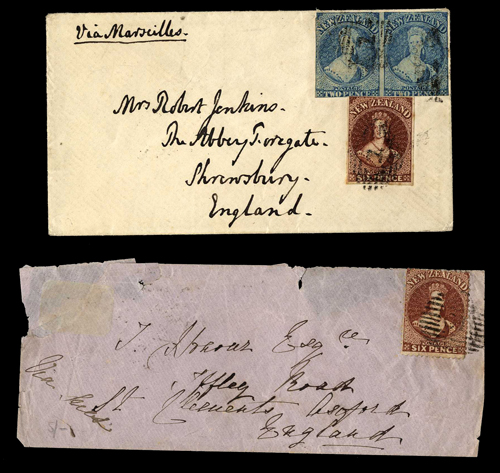 Via Marseilles.
NEW ZEALAND
NEW ZEALAND
POSTAGE
POSTAGE
TWO PENCE
TWO PENCE
NEW ZEALAND
SIX PENCE
Mrs Robert Jenkins.
The Abbey Foregate.
Shrewsbury.
England.
NEW ZEALAND
POSTAGE
SIX PENCE
Esqre
Iffley Road
St. Clements Oxford
England
Via